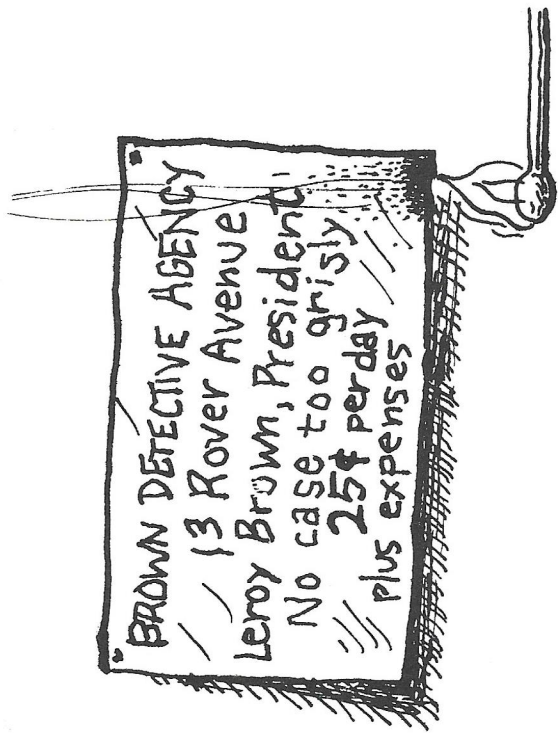 BROWN DETECTIVE AGENCY
13 Rover Avenue
Leroy Brown, President
No case too grisly
25¢ per day
plus expenses